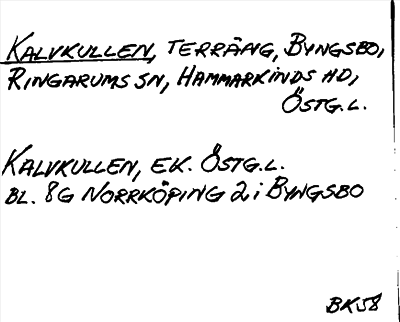 KALVKULLEN, TERRÄNG, BYNGSBO,
RINGARUMS SN, HAMMARKINDS HD,
ÖSTG.L.
KALVKULLEN, EK. ÖSTG.L.
BL. 8G NORRKÖPING 2i BYNGSBO
BK58